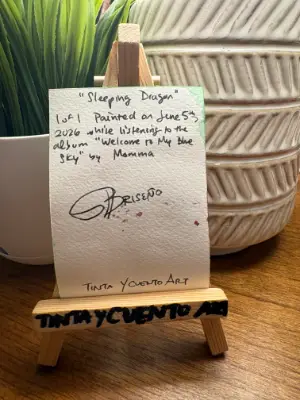 "Sleeping Dragon"
1 of 1 Painted on June 5th,
2026 while listening to the
album "Welcome to My Blue
Sky" by Momma
BRISEÑO
TINTA Y CUENTO ART
TINTA Y CUENTO ART